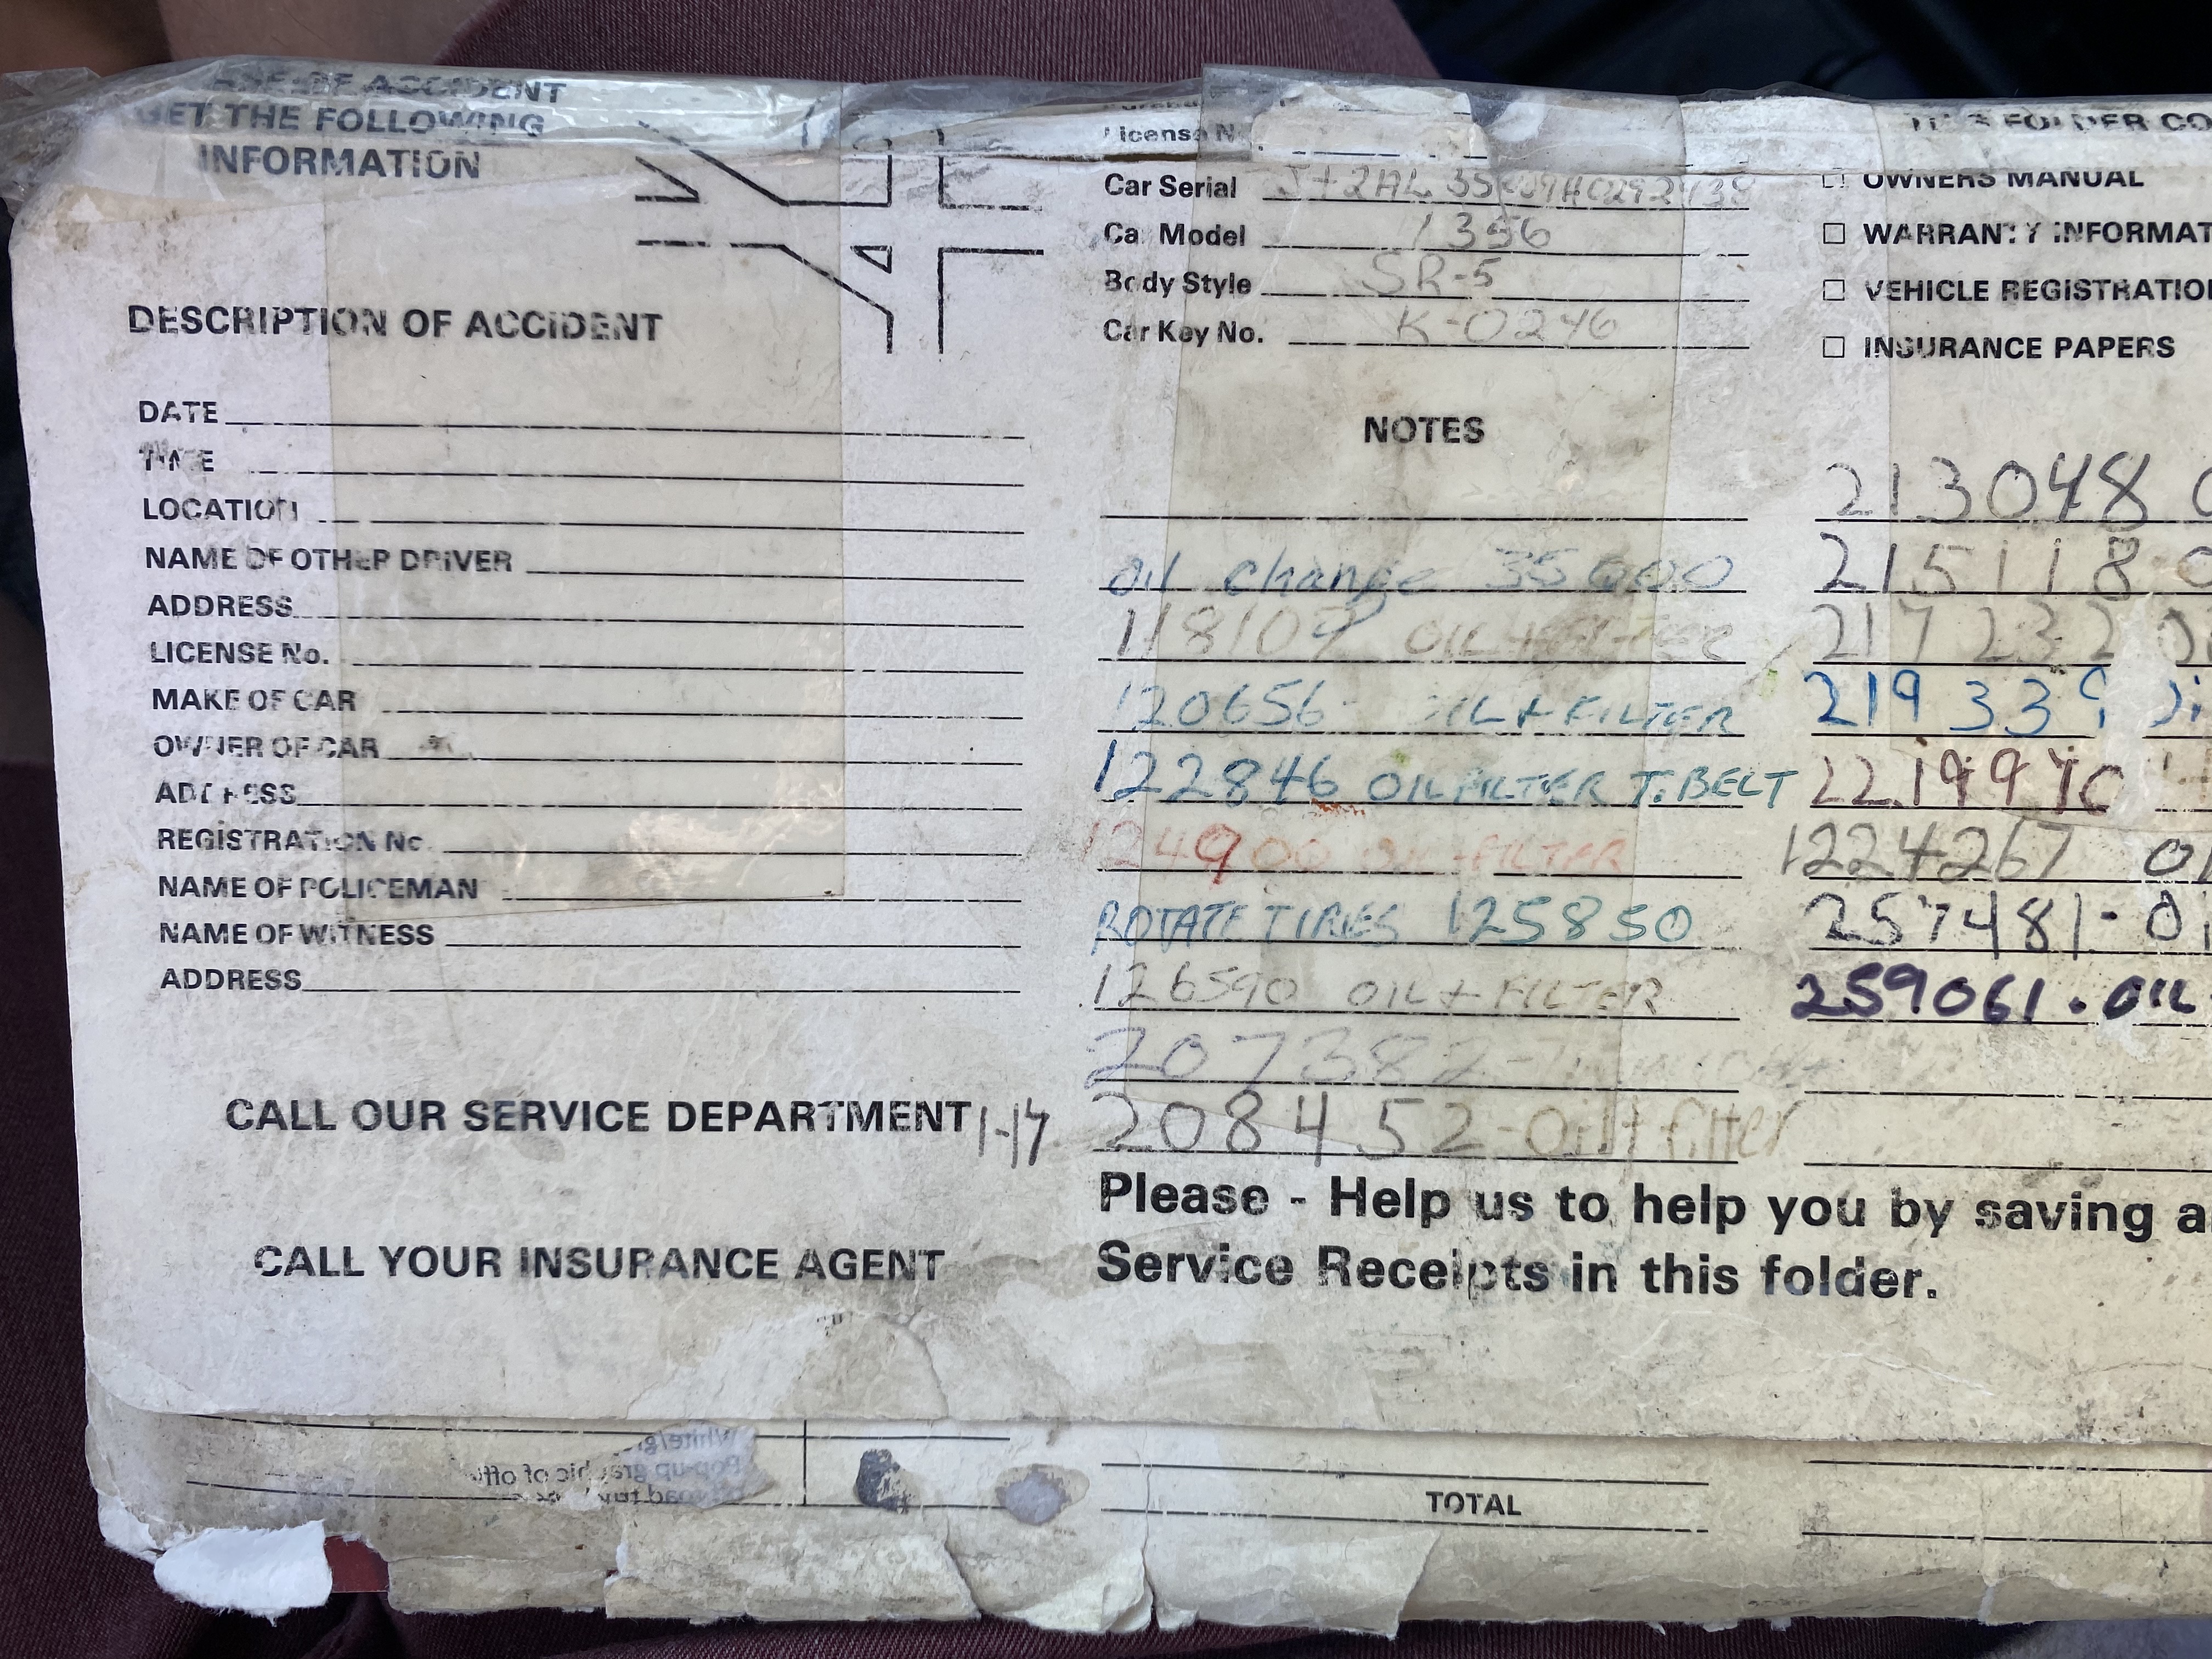 OF ACCIDENT
GET THE FOLLOWING
INFORMATION
DESCRIPTION OF ACCIDENT
DATE
TIME
LOCATION
NAME OF OTHER DRIVER
ADDRESS
LICENSE No.
MAKE OF CAR
OWNER OF CAR
ADDRESS
REGISTRATION No.
NAME OF POLICEMAN
NAME OF WITNESS
ADDRESS
CALL OUR SERVICE DEPARTMENT
CALL YOUR INSURANCE AGENT
License N
Car Serial
Car Model 1356
Body Style SR-5
Car Key No. K-0246
NOTES
oil change 35000
118109 OIL + FILTER
120656 OIL + FILTER
122846 OIL FILTER T. BELT
124900 OIL + FILTER
ROTATE TIRES 125850
126590 OIL + FILTER
207382-
1-17 208452-Oil + filter
THIS FOLDER CO
OWNERS MANUAL
WARRANTY INFORMAT
VEHICLE REGISTRATIO
INSURANCE PAPERS
213048
215118
217232
219339
224267
257481-
259061. OIL
Please - Help us to help you by saving a
Service Receipts in this folder.
White/gr
Pop-up graphic of offi
TOTAL